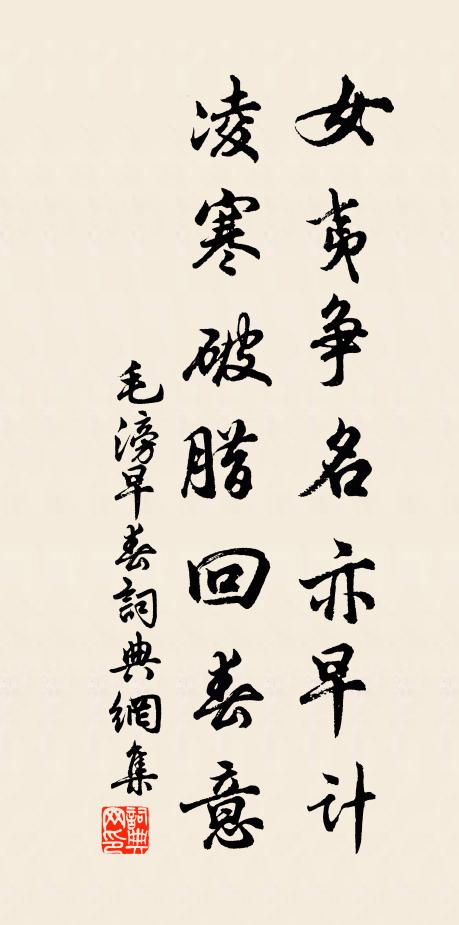 女夷争名亦早计
凌寒破腊回春意
毛滂早春詞典網集
詞典网印